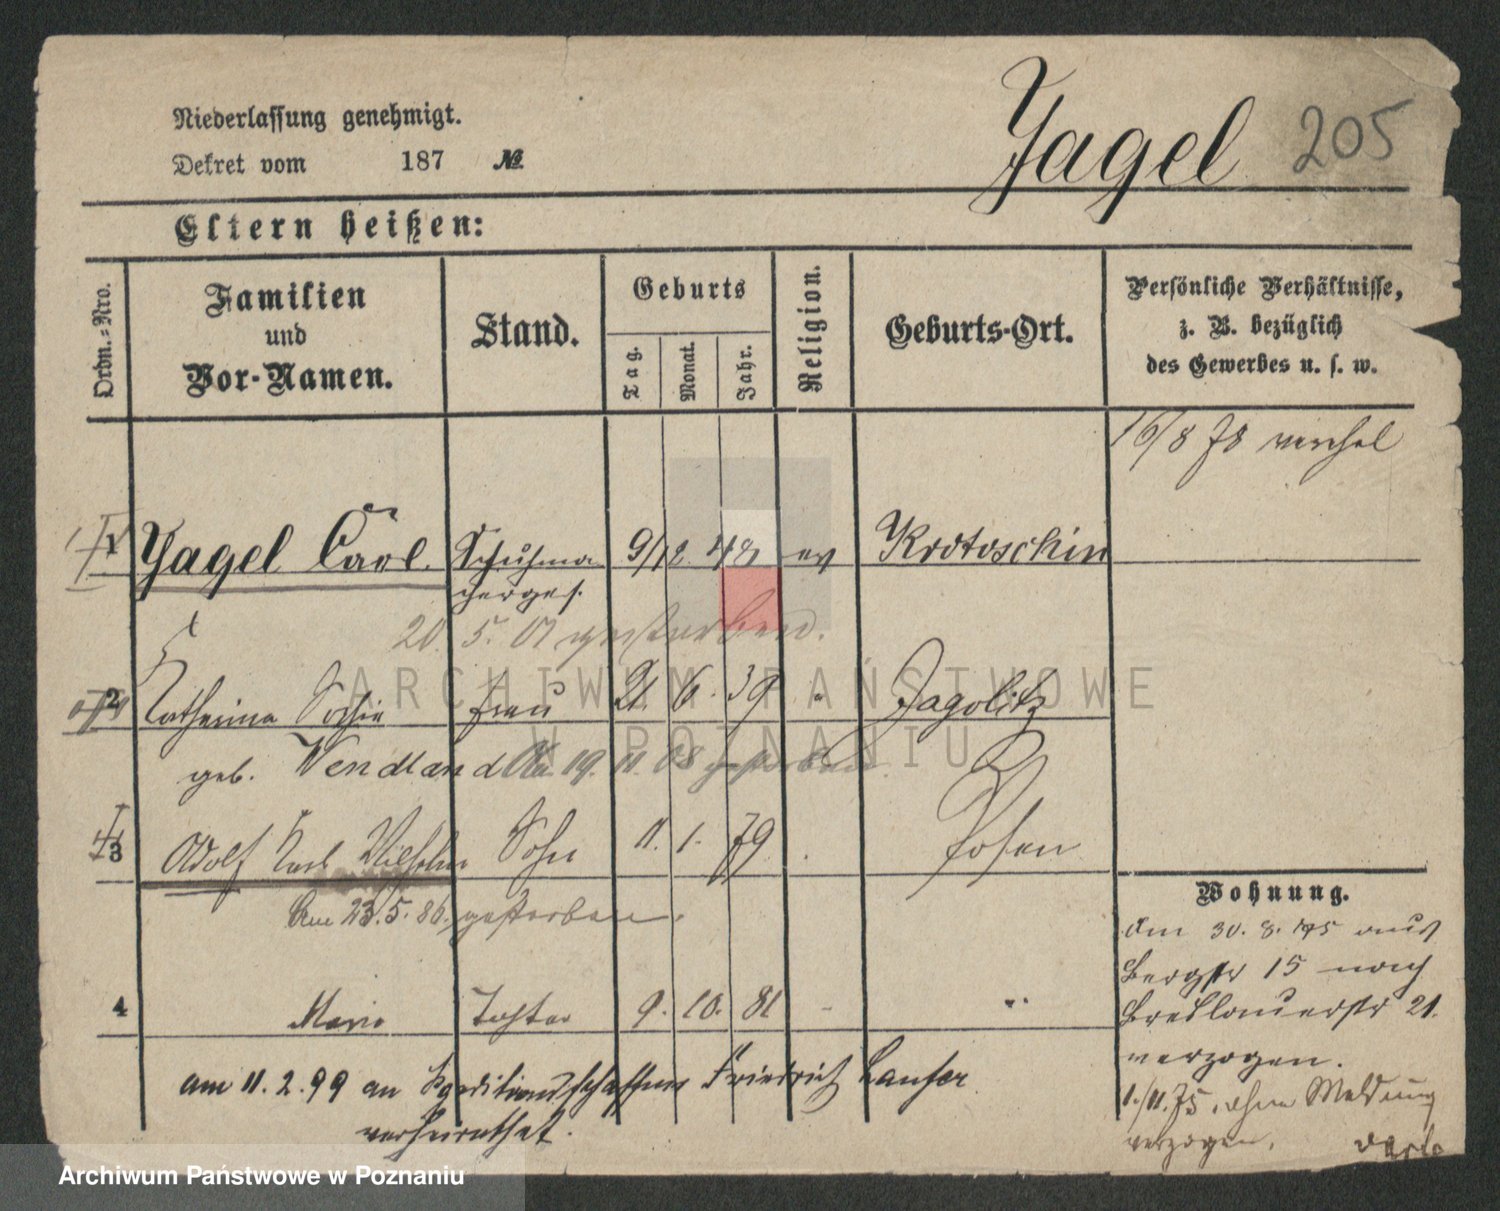 Niederlassung genehmigt.
Dekret vom 187 №
Jagel 205
Eltern heißen:
Ordn.-Nro.
Familien
und
Vor-Namen.
Stand.
Geburts
Tag.
Monat.
Jahr.
Religion.
Geburts-Ort.
Persönliche Verhältnisse,
z. B. bezüglich
des Gewerbes u. s. w.
16/8 78
1 Jagel Carl. Schuhma 9/12 48 ev Krotoschin
cherges.
20. 5. 01 gestorben.
2 Katherina Sophie Frau 21. 6. 39 " Jagolitz
geb. Wendland 19. 11. 08 gestorben.
3 Adolf Karl Wilhelm Sohn 11. 1. 79 Posen
Am 23. 5. 86. gestorben.
4 Marie Tochter 9. 10. 81 "
am 11. 2. 99 an Friedrich
verheirathet.
Wohnung.
Am 30. 8. 75 aus
Bergstr 15 nach
Breslauerstr 21.
verzogen.
1./11. 75. ohne Meldung
verzogen.
ARCHIWUM PAŃSTWOWE
W POZNANIU
Archiwum Państwowe w Poznaniu